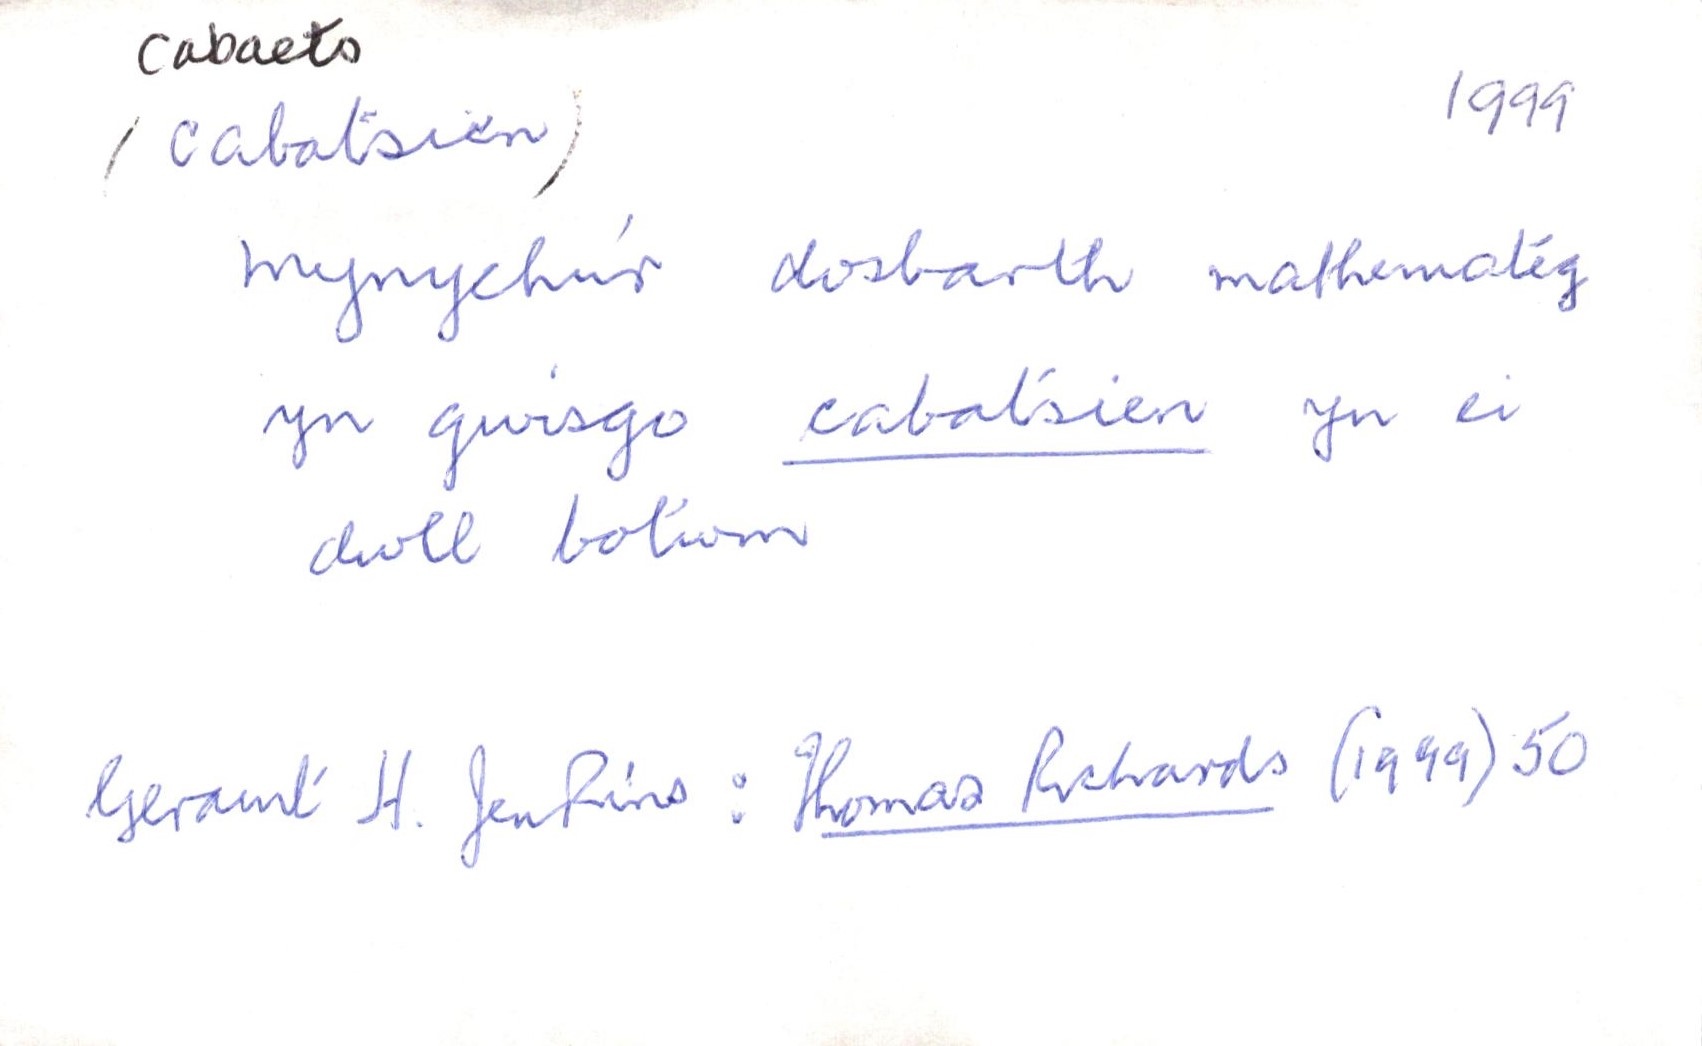 cabaets
(cabatsien)
1999
mynychu'r dosbarth mathemateg
yn gwisgo cabatsien yn ei
dwll botwm
Geraint H. Jenkins : Thomas Richards (1999) 50